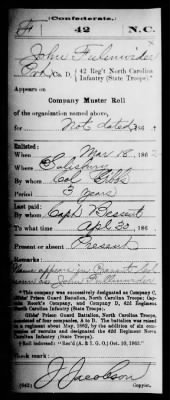 (Confederate.)
42 N.C.
John Fulenwider
Pvt, Co. D, 42 Reg't North Carolina Infantry (State Troops).*
Appears on
Company Muster Roll
of the organization named above,
for Not dated, 186
Enlisted:
When Mar 18, 1862
Where Salisbury
By whom Col Gibbs
Period 3 years
Last paid:
By whom Capt Bessent
To what time April 30, 186
Present or absent Present
Remarks:
Name appears in
as John Fullenwider
*This company was successively designated as Company C, Gibbs' Prison Guard Battalion, North Carolina Troops; Captain
Company, and Company D, 42d Regiment North Carolina Infantry (State Troops).
Gibbs' Prison Guard Battalion, North Carolina Troops, consisted of four companies, A to D. The battalion was raised to a regiment about May, 1862, by the addition of six companies of recruits and designated the 42d Regiment North Carolina Infantry (State Troops).
Roll indorsed: "Rec'd (A. & I. G. O.) Oct. 10, 1862."
Book mark:
J Jacobson
(642) Copyist.